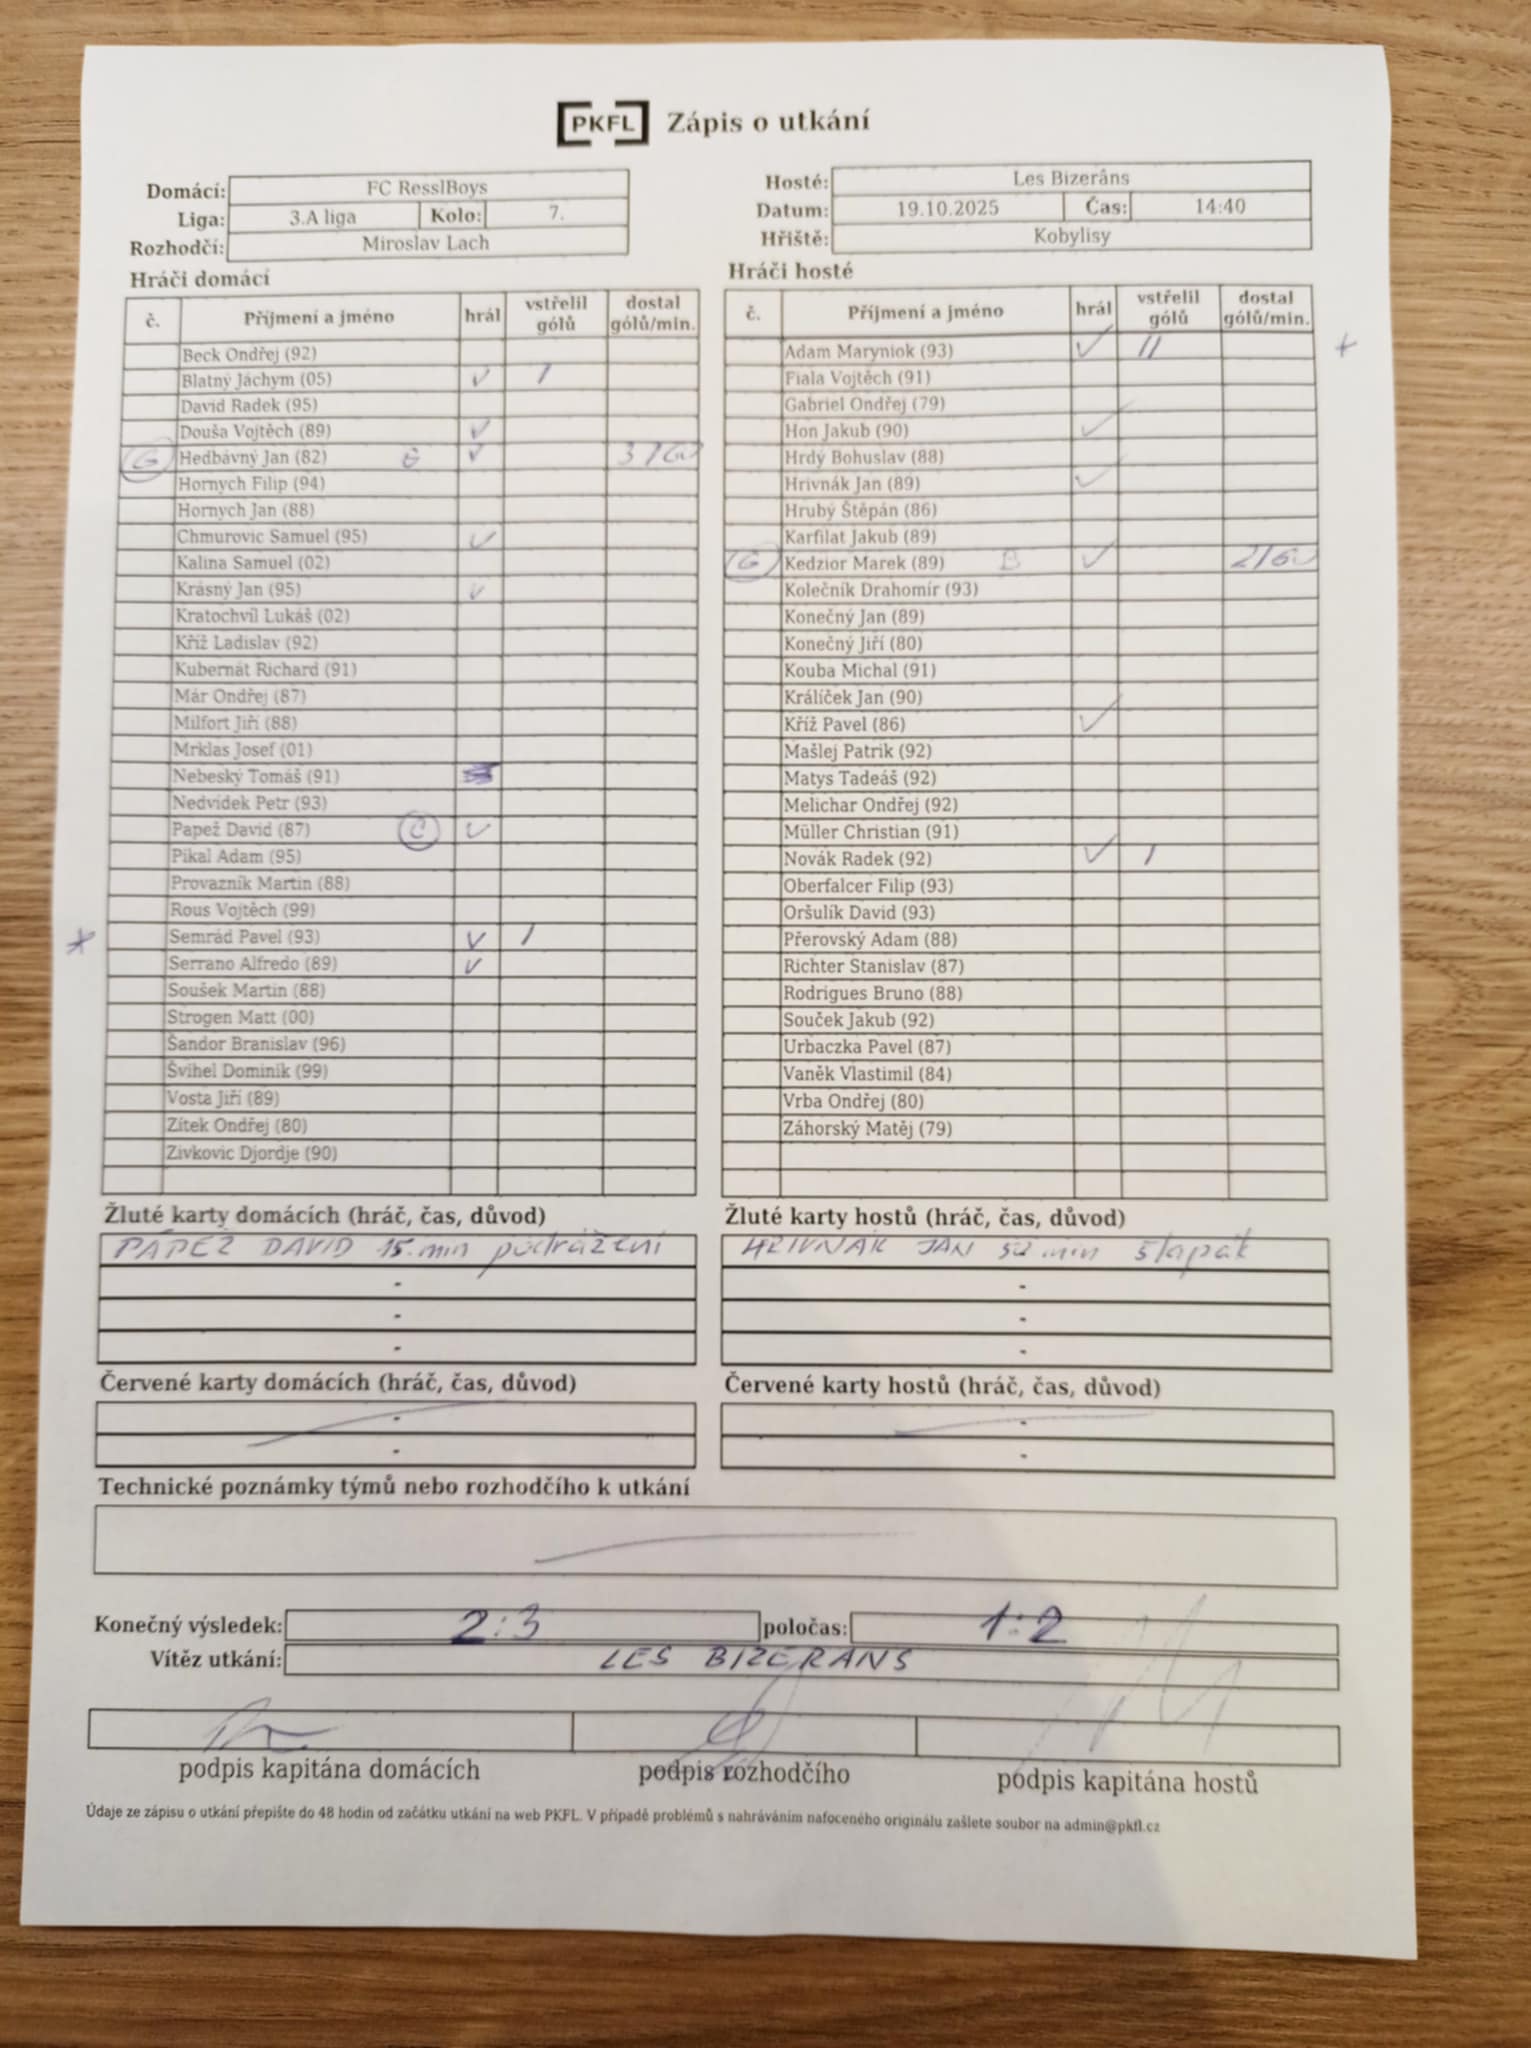 PKFL Zápis o utkání
Domácí: FC ResslBoys
Liga: 3.A liga Kolo: 7.
Rozhodčí: Miroslav Lach
Hosté: Les Bizerâns
Datum: 19.10.2025 Čas: 14:40
Hřiště: Kobylisy
Hráči domácí
č. Příjmení a jméno hrál vstřelil gólů dostal gólů/min.
Beck Ondřej (92)
Blatný Jáchym (05) ✓ /
David Radek (95)
Douša Vojtěch (89) ✓
G Hedbávný Jan (82) ✓ 3/60
Hornych Filip (94)
Hornych Jan (88)
Chmurovic Samuel (95) ✓
Kalina Samuel (02)
Krásný Jan (95) ✓
Kratochvíl Lukáš (02)
Kříž Ladislav (92)
Kubernát Richard (91)
Már Ondřej (87)
Milfort Jiří (88)
Mrklas Josef (01)
Nebeský Tomáš (91)
Nedvídek Petr (93)
Papež David (87) C ✓
Pikal Adam (95)
Provazník Martin (88)
Rous Vojtěch (99)
* Semrád Pavel (93) ✓ /
Serrano Alfredo (89) ✓
Soušek Martin (88)
Strogen Matt (00)
Šandor Branislav (96)
Švihel Dominik (99)
Vosta Jiří (89)
Zítek Ondřej (80)
Zivkovic Djordje (90)
Hráči hosté
č. Příjmení a jméno hrál vstřelil gólů dostal gólů/min.
Adam Maryniok (93) ✓ // +
Fiala Vojtěch (91)
Gabriel Ondřej (79)
Hon Jakub (90) ✓
Hrdý Bohuslav (88)
Hrivnák Jan (89) ✓
Hrubý Štěpán (86)
Karfilat Jakub (89)
G Kedzior Marek (89) ✓ 2/60
Kolečník Drahomír (93)
Konečný Jan (89)
Konečný Jiří (80)
Kouba Michal (91)
Králíček Jan (90)
Kříž Pavel (86) ✓
Mašlej Patrik (92)
Matys Tadeáš (92)
Melichar Ondřej (92)
Müller Christian (91)
Novák Radek (92) ✓ /
Oberfalcer Filip (93)
Oršulík David (93)
Přerovský Adam (88)
Richter Stanislav (87)
Rodrigues Bruno (88)
Souček Jakub (92)
Urbaczka Pavel (87)
Vaněk Vlastimil (84)
Vrba Ondřej (80)
Záhorský Matěj (79)
Žluté karty domácích (hráč, čas, důvod)
PAPEŽ DAVID 15.min podrážení
-
-
-
Žluté karty hostů (hráč, čas, důvod)
HRIVNÁK JAN min šlapák
-
-
-
Červené karty domácích (hráč, čas, důvod)
-
-
Červené karty hostů (hráč, čas, důvod)
-
-
Technické poznámky týmů nebo rozhodčího k utkání
Konečný výsledek: 2:3 poločas: 1:2
Vítěz utkání: LES BIZERANS
podpis kapitána domácích
podpis rozhodčího
podpis kapitána hostů
Údaje ze zápisu o utkání přepište do 48 hodin od začátku utkání na web PKFL. V případě problémů s nahráváním nafoceného originálu zašlete soubor na admin@pkfl.cz